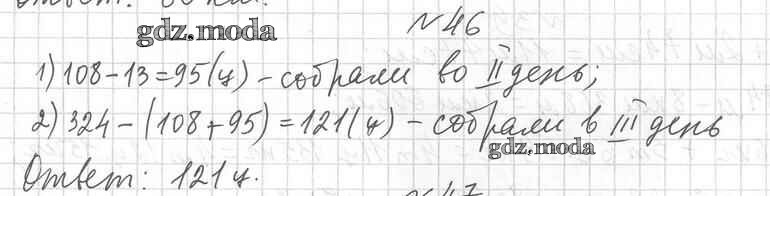 №46
gdz.moda
1) 108-13=95(ц) - собрали во II день;
2) 324-(108+95)=121(ц) - собрали в III день
gdz.moda
Ответ: 121ц.
№47